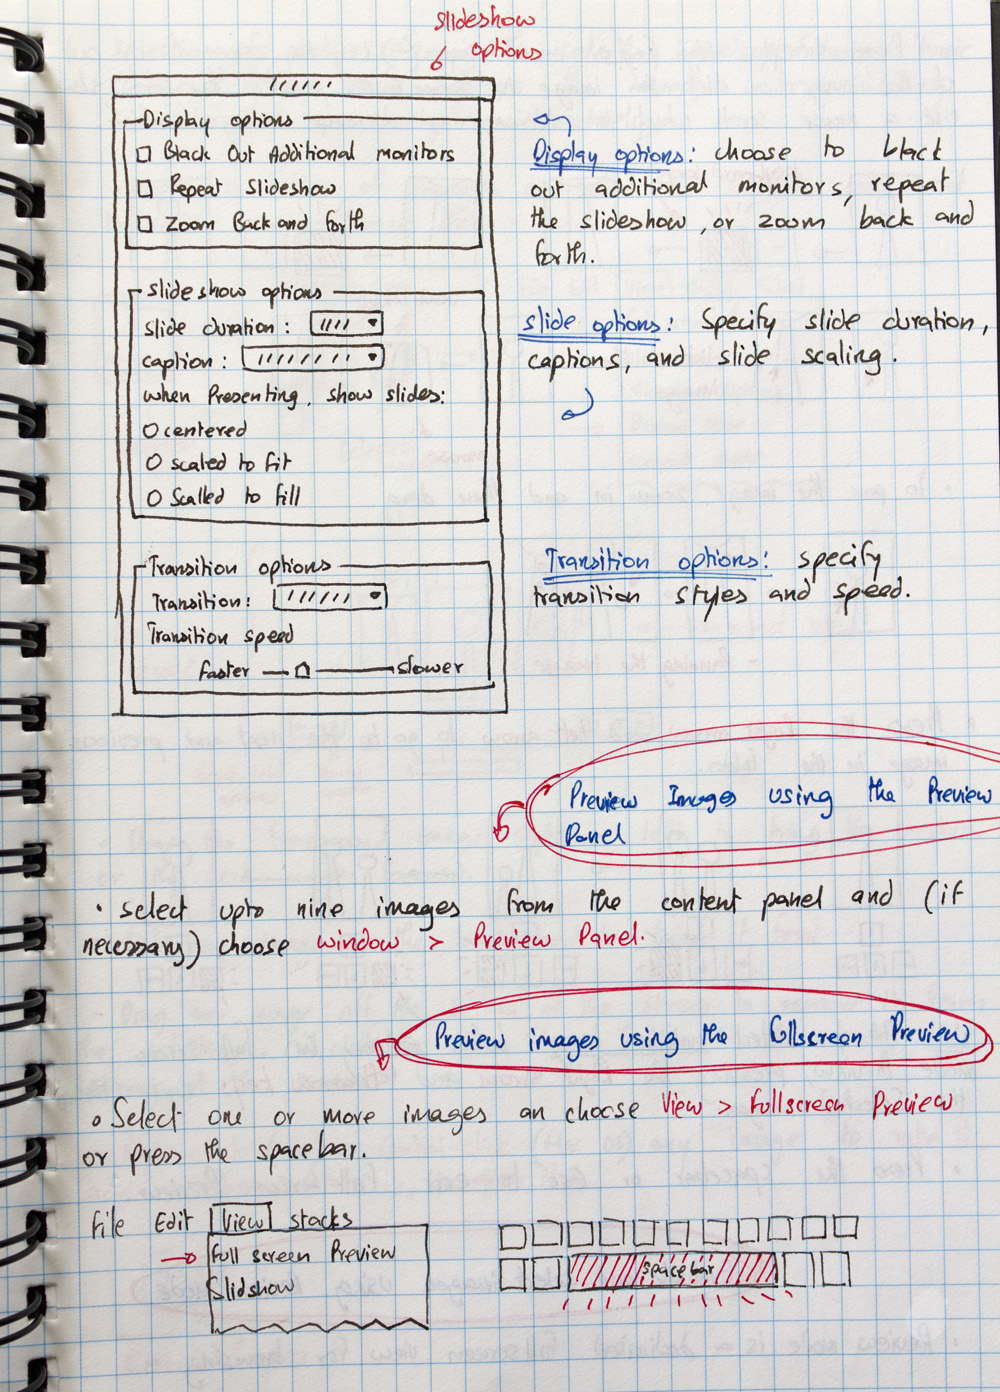 slideshow
options
Display options
Black Out Additional monitors
Repeat Slideshow
Zoom Back and forth
Display options: choose to black
out additional monitors, repeat
the slideshow, or zoom back and
forth.
slide show options
slide duration:
caption:
when Presenting, show slides:
centered
scaled to fit
Scalled to fill
slide options: Specify slide duration,
captions, and slide scaling.
Transition options
Transition:
Transition speed
faster slower
Transition options: specify
transition styles and speed.
Preview Images using the Preview
Panel
• select upto nine images from the content panel and (if
necessary) choose window > Preview Panel.
Preview images using the fullscreen Preview
• Select one or more images an choose View > Fullscreen Preview
or press the spacebar.
File Edit View stacks
Full screen Preview
Slidshow
spacebar